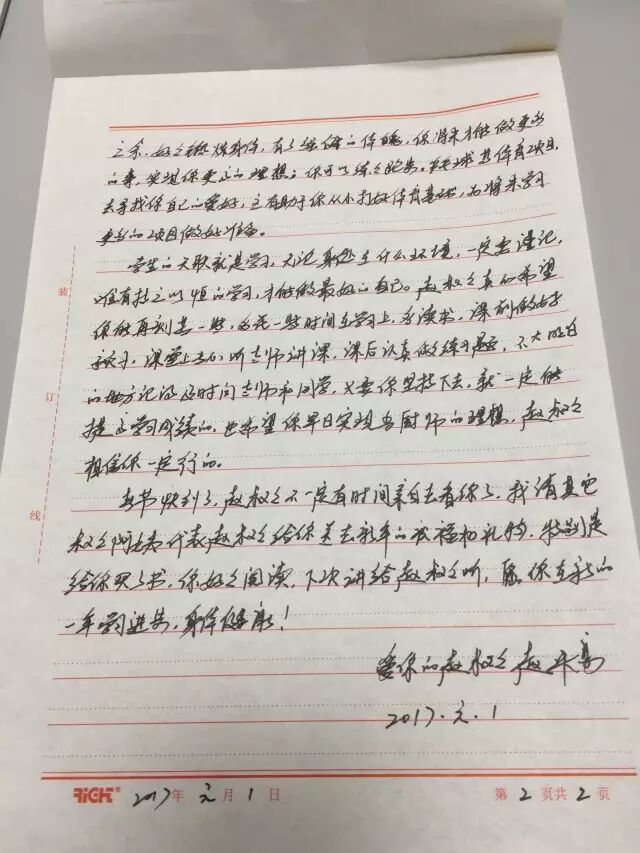 之余，好好锻炼身体，有了强健的体魄，你将来才能做更多
的事，实现你更大的理想；你可以练练跑步、乒乓球其体育项目，
去寻找你自己的爱好，它有助于你从小打好体育基础，为将来学习
更多的项目做好准备。
学生的天职就是学习，无论身处在什么环境，一定要谨记，
唯有持之以恒的学习，才能做最好的自己。赵叔叔真的希望
你能再刻苦一些，多花一些时间在学习上，多读书，课前做好
预习，课堂上专心听老师讲课，课后认真做练习题，不大明白
的地方记得及时问老师和同学，只要你坚持下去，就一定能
提高学习成绩的，也希望你早日实现当厨师的理想，赵叔叔
相信你一定行的。
春节快到了，赵叔叔不一定有时间亲自去看你了，我请其它
叔叔阿姨代表赵叔叔给你送去新年的祝福和礼物，特别是
给你买了书，你好好阅读，下次讲给赵叔叔听，愿你在新的
一年学习进步，身体健康！
爱你的赵叔叔 赵
2017.元.1
装
订
线
RICH® 2017年 元月1日 第2页共2页